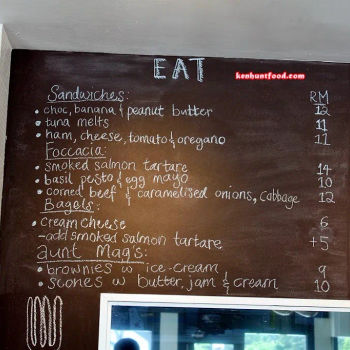 EAT
kenhuntfood.com
Sandwiches: RM
• choc, banana & peanut butter 12
• tuna melts 11
• ham, cheese, tomato & oregano 11
Foccacia:
• smoked salmon tartare 14
• basil pesto & egg mayo 10
• corned beef & caramelised onions, cabbage 12
Bagels:
• cream cheese 6
- add smoked salmon tartare +5
aunt mag's:
• brownies w ice-cream 9
• scones w butter, jam & cream 10